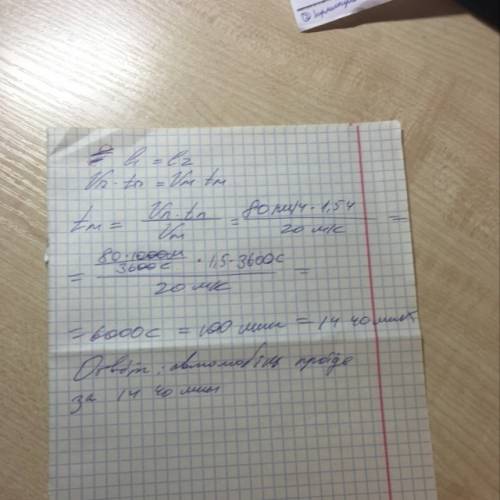 l₁ = l₂
Vп · tп = Vм tм
tм = Vп · tп / Vм = 80 км/ч · 1,5ч / 20 м/с =
= 80 · 1000м / 3600с · 1,5 · 3600с / 20 м/с =
= 6000с = 100 мин = 1ч 40 мин
Отвѣт: автомобіль проїде
за 1ч 40 мин